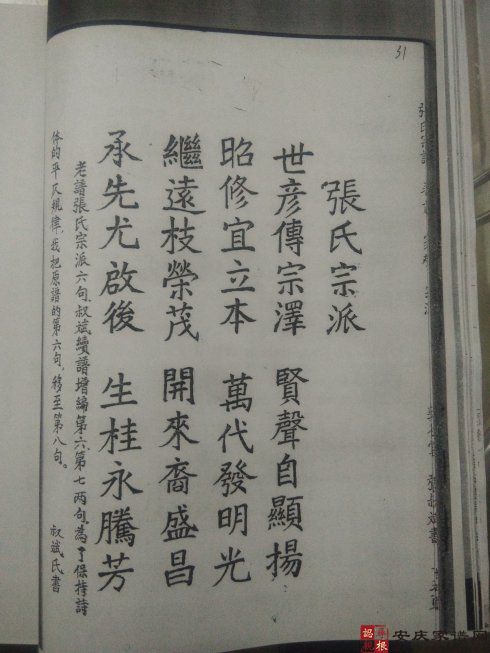 31
張氏宗派
世彦傳宗澤 賢聲自顯揚
昭修宜立本 萬代發明光
繼遠枝榮茂 開來裔盛昌
承先尤啟後 生桂永騰芳
老譜張氏宗派六句,叔斌續譜增編第六、第七兩句。為了保持詩
体的平仄規律,我把原譜的第六句,移至第八句。
叔斌氏書
張氏宗譜
尋根
認親
安庆家谱网